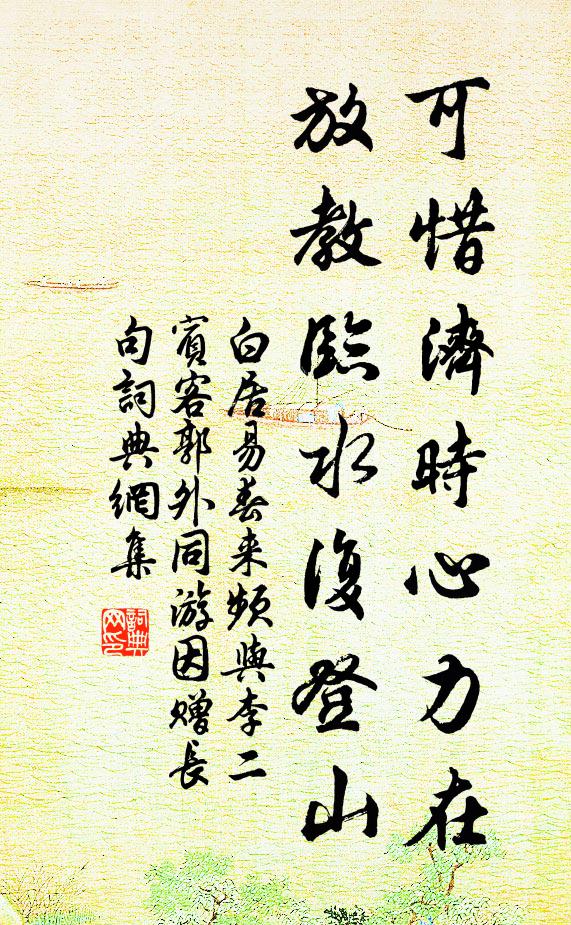 可惜濟時心力在
放教臨水復登山
白居易春来頻與李二
賓客郭外同游因贈長
句詞典網集
詞典网印